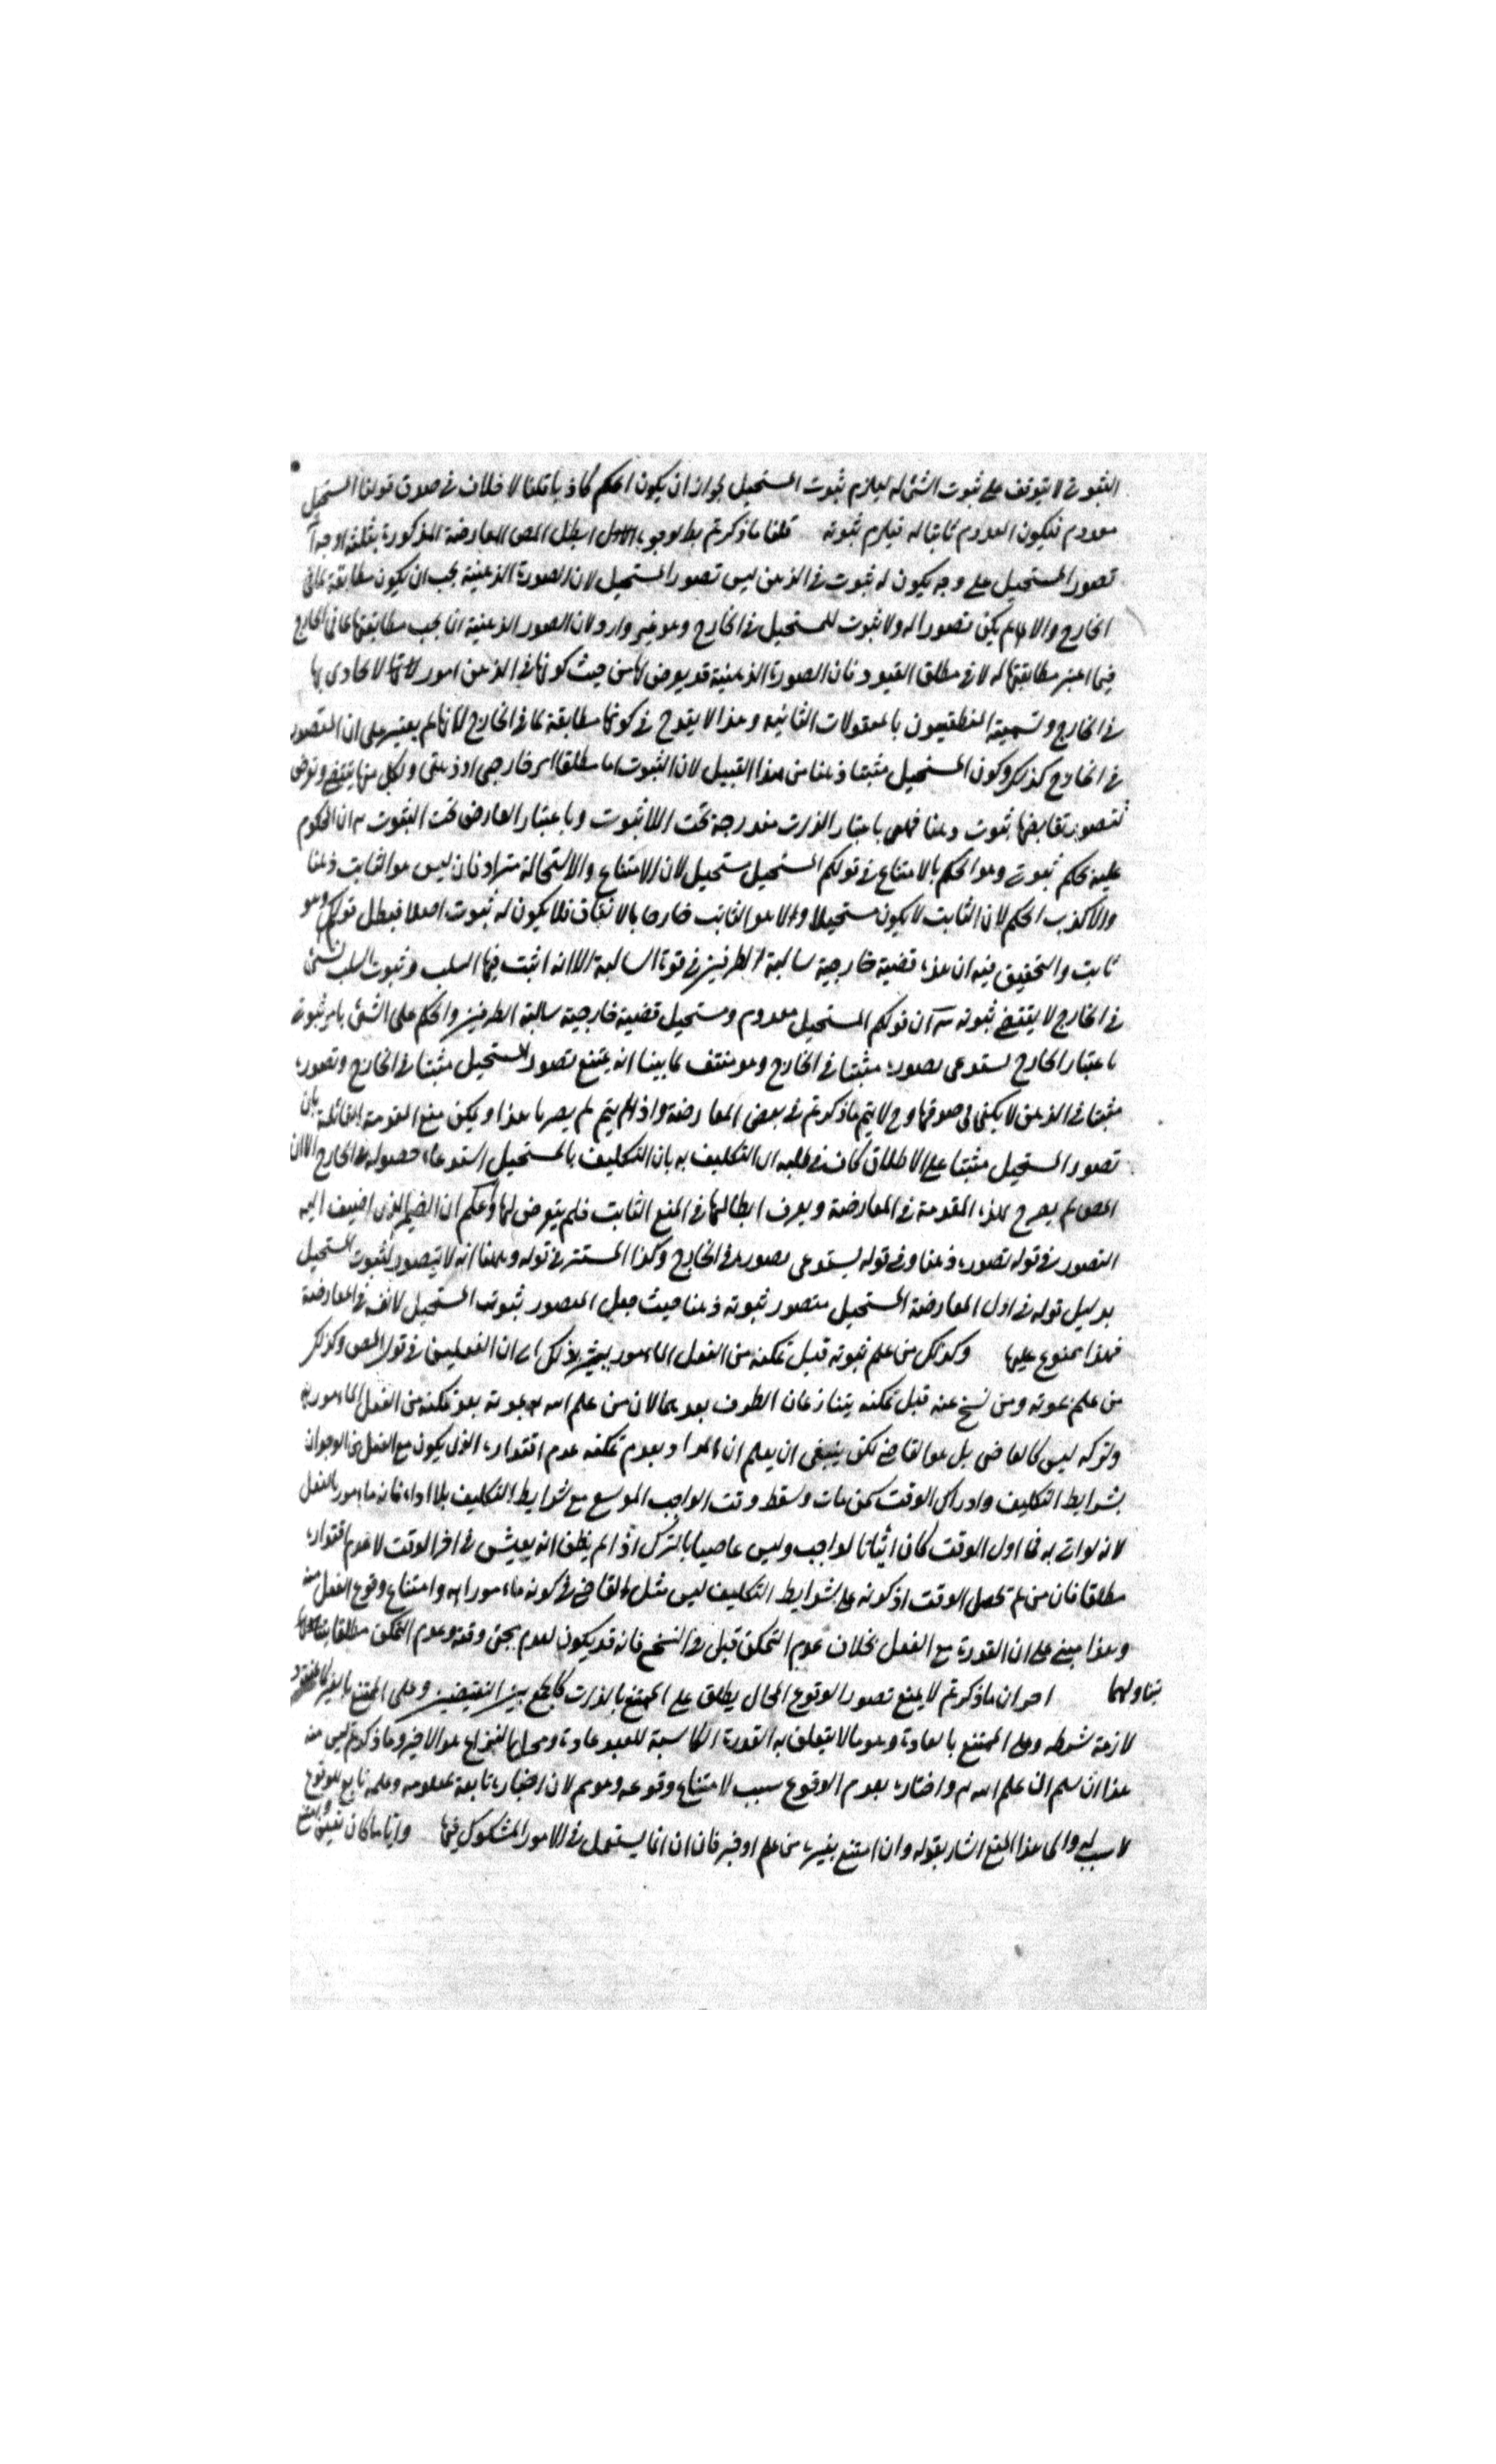 الثبوتى لا يتوقف على ثبوت الشئ له ليلزم ثبوت المستحيل لجواز ان يكون الحكم كاذبا قلنا لا خلاف فى صدق قولنا المستحيل
معدوم فيكون العدم ثابتا له فيلزم ثبوته قلنا ما ذكرتم بط لوجوه الاول ابطل المص المعارضة المذكورة بثلثة اوجه آ
تصور المستحيل على وجه يكون له ثبوت فى الذهن ليس تصور المستحيل لان الصورة الذهنية يجب ان يكون مطابقة لما فى
الخارج والا لم يكن تصورا له ولا ثبوت للمستحيل فى الخارج وهو غير وارد لان الصور الذهنية انما يجب مطابقتها لما فى الخارج
فيما اعتبر مطابقتها له لا فى مطلق القيود فان الصورة الذهنية قد يعرض لها من حيث كونها فى الذهن امور لا يحاذى بها
فى الخارج وتسميه المنطقيون بالمعقولات الثانية وهذا لا يقدح فى كونها مطابقة لما فى الخارج لانها لم يعتبر على ان المتصور
فى الخارج كذلك وكون المستحيل مثبتا ذهنا من هذا القبيل لان الثبوت اما مطلقا او خارجى او ذهنى ولكل منها نقيض وتعرض
لتصور نقايضها ثبوت ذهنا فهى باعتبار الذات مندرجة تحت اللاثبوت وباعتبار العارض تحت الثبوت ب ان المحكوم
عليه بحكم ثبوتى وهو الحكم بالامتناع فى قولكم المستحيل مستحيل لان الامتناع والاستحالة مترادفان ليس هو الثابت ذهنا
والا كذب الحكم لان الثابت لا يكون مستحيلا ولا هو الثابت خارجا بالاتفاق فلا يكون له ثبوت اصلا فبطل قولكم وهو
ثابت والتحقيق فيه ان هذه قضية خارجية سالبة الطرفين فى قوة السالبة الا انه اثبت فيها السلب وثبوت السلب لشئ
فى الخارج لا يقتضى ثبوته ج ان قولكم المستحيل معدوم ومستحيل قضية خارجية سالبة الطرفين والحكم على الشئ بامر ثبوتى
باعتبار الخارج يستدعى تصوره مثبتا فى الخارج وهو منتف لما بينا انه يمتنع تصور المستحيل مثبتا فى الخارج وتصوره
مثبتا فى الذهن لا يكفى فى صدقها وح لا يتم ما ذكرتم فى بعض المعارضة واذا لم يتم لم يصر ما هذا ويمكن منع المقدمة القائلة بان
تصور المستحيل مثبتا على الاطلاق كاف فى طلبه اى التكليف به بان التكليف بالمستحيل استدعاء حصوله فى الخارج الا ان
المص لم يصرح بهذه المقدمة فى المعارضة ويعرف ابطالها فى المنع الثابت فلم يتعرض لها واعلم ان الضمير الذى اضيف اليه
التصور فى قوله تصوره ذهنا وفى قوله يستدعى تصوره فى الخارج وكذا المستتر فى قوله وهنا انه لا يتصور لثبوت المستحيل
بدليل قوله فى اول المعارضة المستحيل متصور ثبوته ذهنا حيث جعل المتصور ثبوت المستحيل لا نفسه فى المعارضة
فهذا ممنوع عليها وكذلك من علم بموته قبل تمكنه من الفعل المأمور يشير بذلك الى ان الفعلين فى قول المص وكذلك
من علم بموته ومن نسخ عنه قبل تمكنه يتنازعان الظرف بعدهما لان من علم الله بموته بعد تمكنه من الفعل المأمور به
وتركه ليس كالعاصى بل هو العاصى لكن ينبغى ان يعلم ان المراد بعدم تمكنه عدم اقتداره الذى يكون مع الفعل الوجدان
بشرايط التكليف وادراك الوقت كمن مات وسقط وقت الواجب الموسع مع شرايط التكليف بلا اداء فانه مأمور بالفعل
لانه لو اتى به فى اول الوقت كان اتيانا لواجب وليس عاصيا بالترك اذا لم يظن انه يعيش فى اخر الوقت لا عدم اقتداره
مطلقا فان من لم تحصل الوقت او كونه على شرايط التكليف ليس مثل العاصى فى كونه مأمورا به وامتناع وقوع الفعل منه
وهذا مبنى على ان القدرة مع الفعل بخلاف عدم التمكن قبل فى النسخ فانه قد يكون لعدم مجئ وقته وعدم التمكن مطلقا
يتناولهما احدها ان ما ذكرتم لا يمنع تصور الوقوع المحال يطلق على الممتنع بالذات كالجمع بين النقيضين وعلى الممتنع بالغير
لازمة شرطه وعلى الممتنع بالعادة وهو ما لا يتعلق به القدرة الكاسبة للعبد عادة ومحل النزاع هو الاخير وما ذكرتم ليس منه
هذا ان سلم ان علم الله واخباره بعدم الوقوع سبب لامتناع وقوعه وهو مم لان اخباره تابعة لمعلومه وعلمه تابع للوقوع
لا سبب له والى هذا المنع اشار بقوله وان امتنع بغيره من علم او خبر فان ان انما يستعمل فى الامور المشكوك فيها